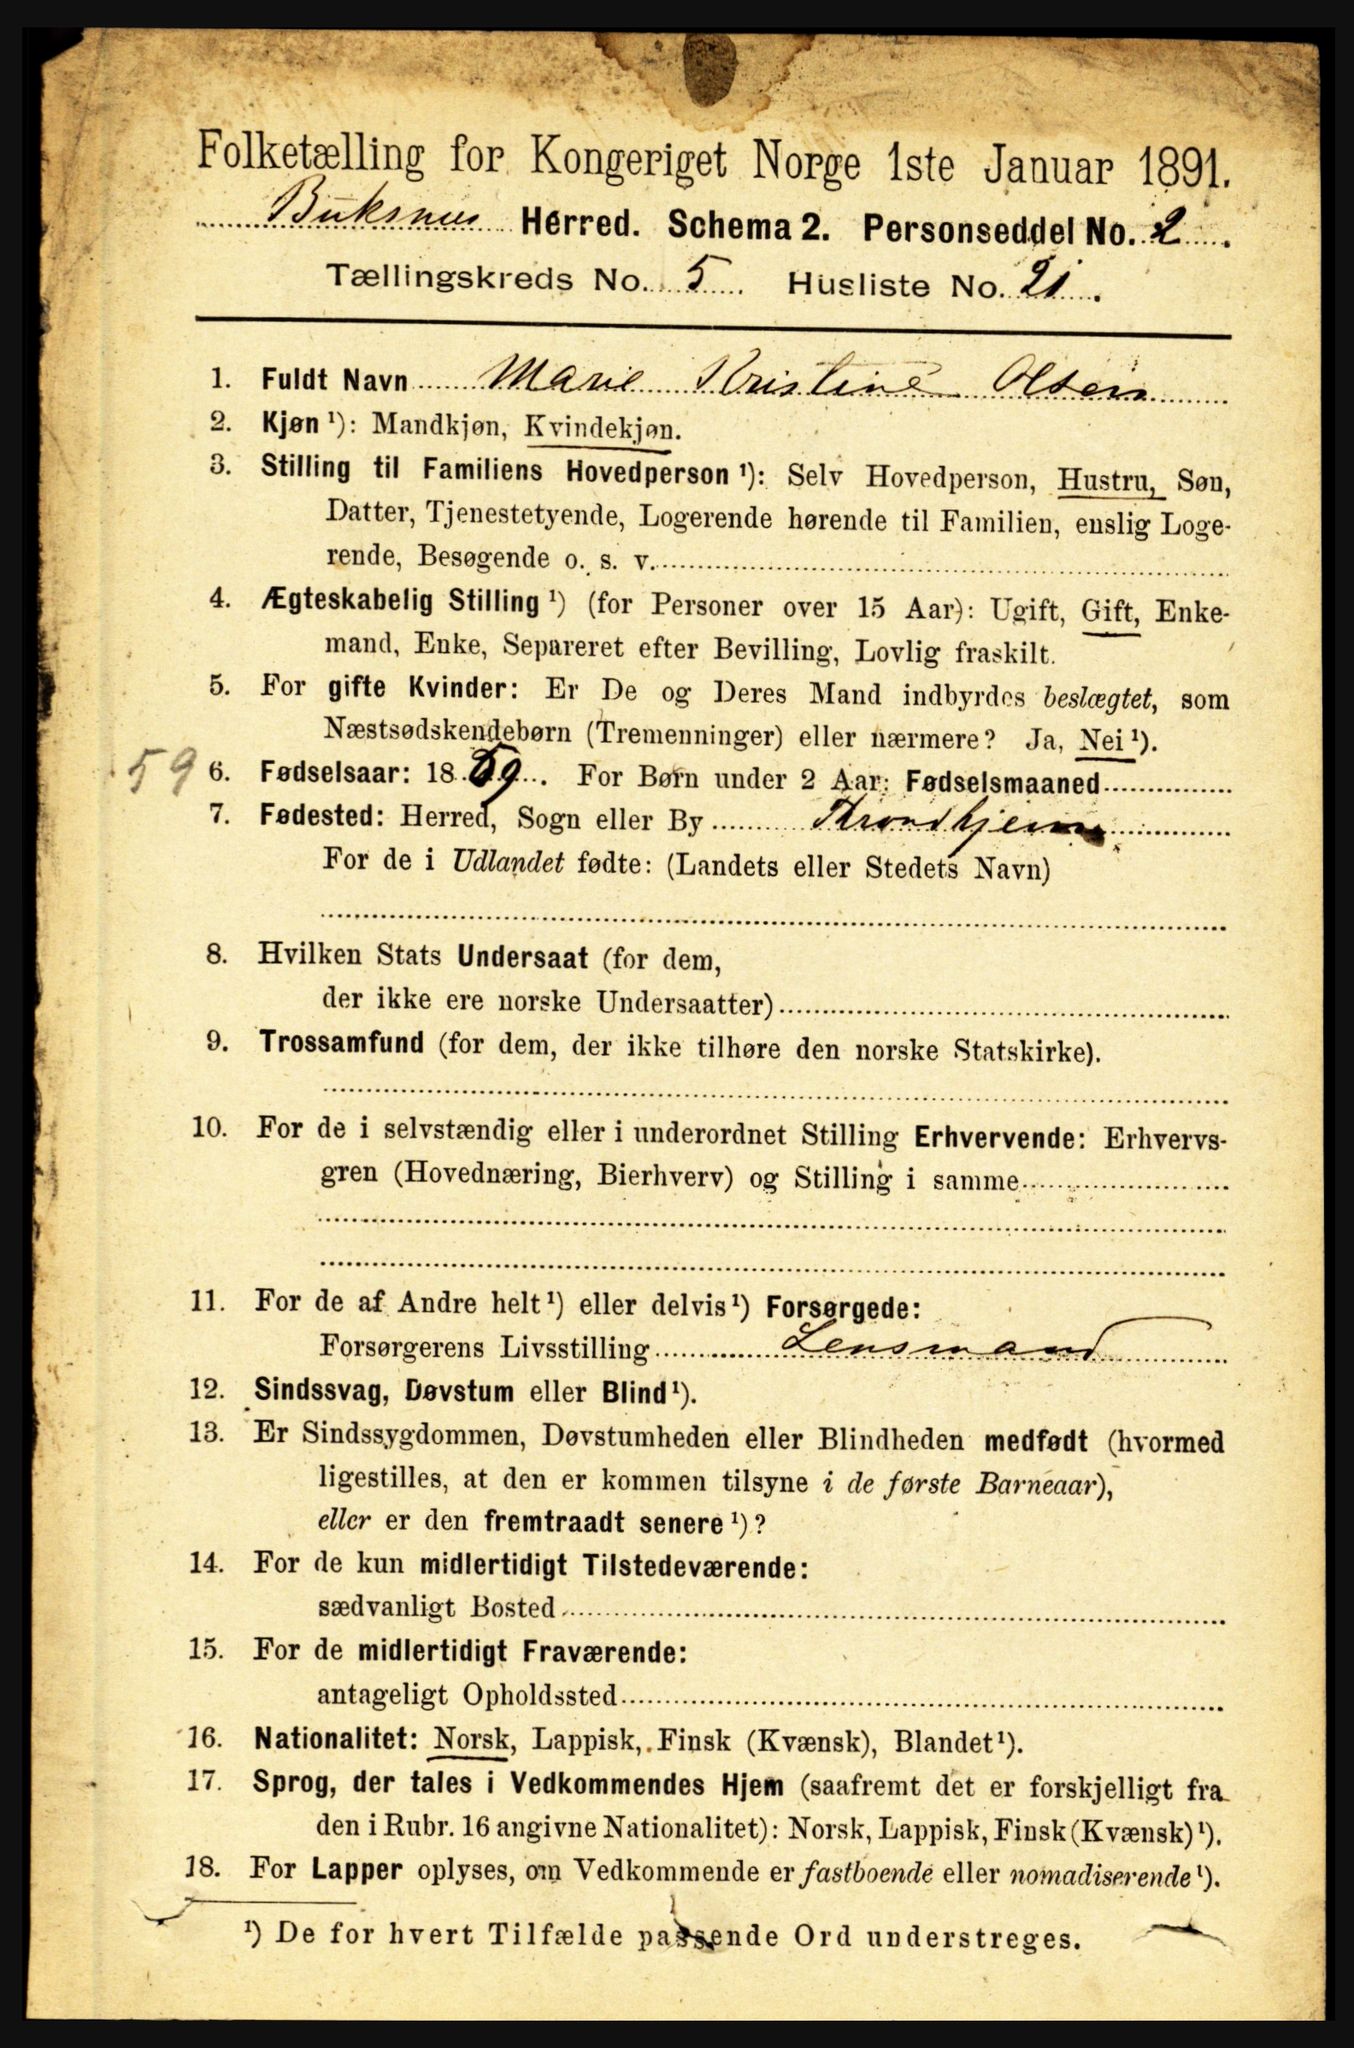 Folketælling for Kongeriget Norge 1ste Januar 1891.
Buksnes Herred. Schema 2. Personseddel No. 2.
Tællingskreds No. 5. Husliste No. 21.
1. Fuldt Navn Marie Kristine Olsen
2. Kjøn ¹): Mandkjøn, Kvindekjøn.
3. Stilling til Familiens Hovedperson ¹): Selv Hovedperson, Hustru, Søn,
Datter, Tjenestetyende, Logerende hørende til Familien, enslig Loge-
rende, Besøgende o. s. v.
4. Ægteskabelig Stilling ¹) (for Personer over 15 Aar): Ugift, Gift, Enke-
mand, Enke, Separeret efter Bevilling, Lovlig fraskilt.
5. For gifte Kvinder: Er De og Deres Mand indbyrdes beslægtet, som
Næstsødskendebørn (Tremenninger) eller nærmere? Ja, Nei ¹).
59 6. Fødselsaar: 1859. For Børn under 2 Aar: Fødselsmaaned
7. Fødested: Herred, Sogn eller By Throndhjem
For de i Udlandet fødte: (Landets eller Stedets Navn)
8. Hvilken Stats Undersaat (for dem,
der ikke ere norske Undersaatter)
9. Trossamfund (for dem, der ikke tilhøre den norske Statskirke).
10. For de i selvstændig eller i underordnet Stilling Erhvervende: Erhvervs-
gren (Hovednæring, Bierhverv) og Stilling i samme
11. For de af Andre helt ¹) eller delvis ¹) Forsørgede:
Forsørgerens Livsstilling Lensmand
12. Sindssvag, Døvstum eller Blind ¹).
13. Er Sindssygdommen, Døvstumheden eller Blindheden medfødt (hvormed
ligestilles, at den er kommen tilsyne i de første Barneaar),
eller er den fremtraadt senere ¹)?
14. For de kun midlertidigt Tilstedeværende:
sædvanligt Bosted
15. For de midlertidigt Fraværende:
antageligt Opholdssted
16. Nationalitet: Norsk, Lappisk, Finsk (Kvænsk), Blandet ¹).
17. Sprog, der tales i Vedkommendes Hjem (saafremt det er forskjelligt fra
den i Rubr. 16 angivne Nationalitet): Norsk, Lappisk, Finsk (Kvænsk) ¹).
18. For Lapper oplyses, om Vedkommende er fastboende eller nomadiserende ¹).
¹) De for hvert Tilfælde passende Ord understreges.